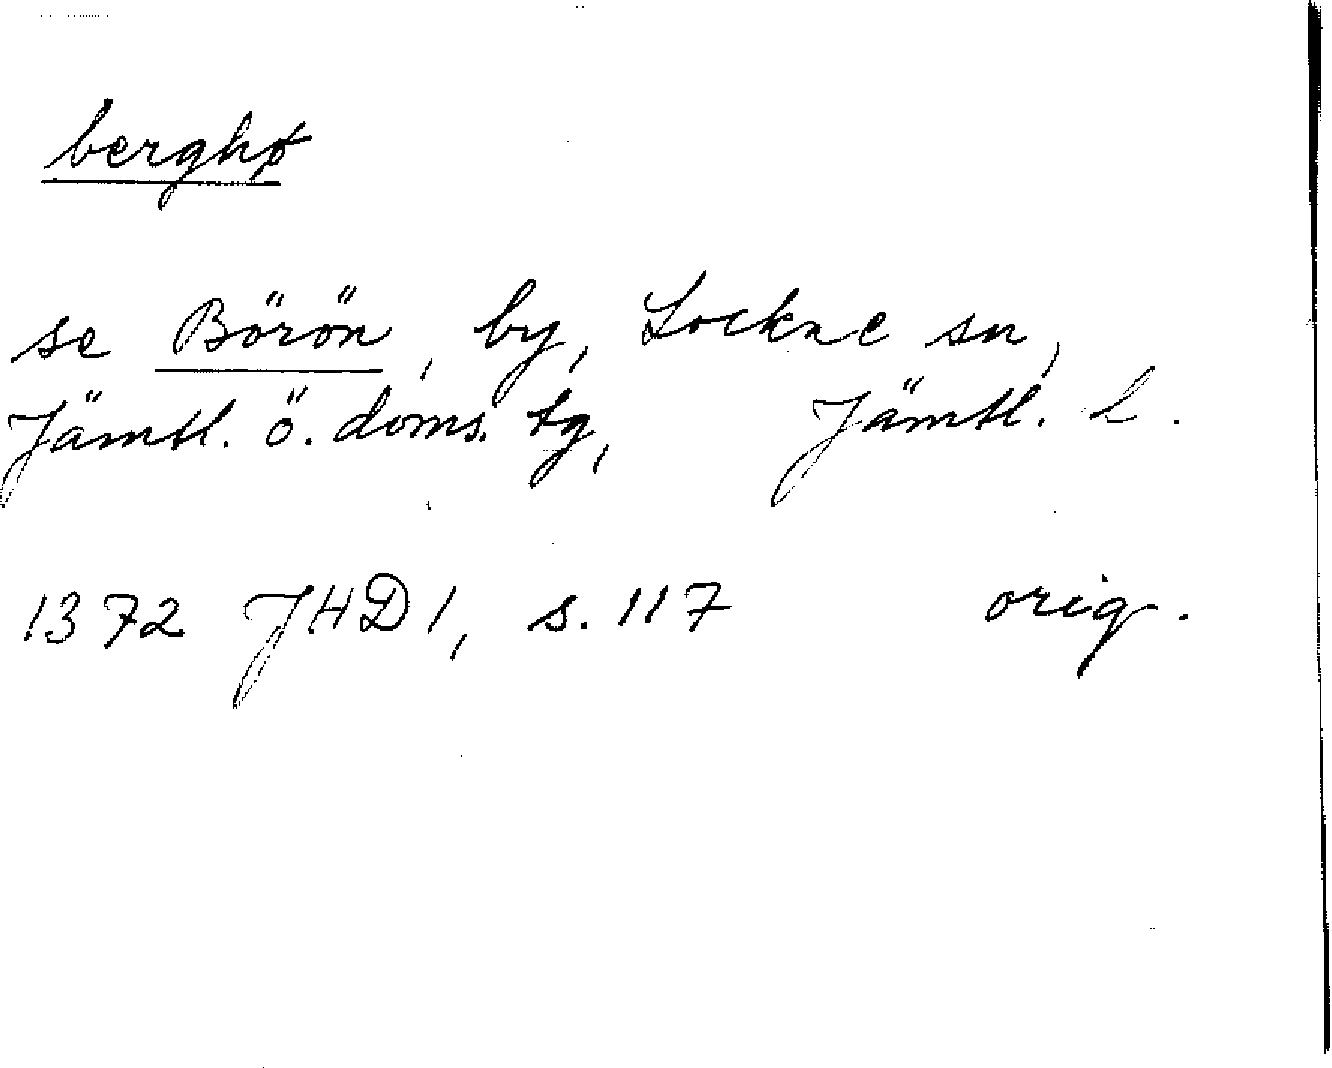 berghø
se Börön, by, Lockne sn,
Jämtl. ö. doms. tg, Jämtl. L.
1372 JHD 1, s. 117 orig.